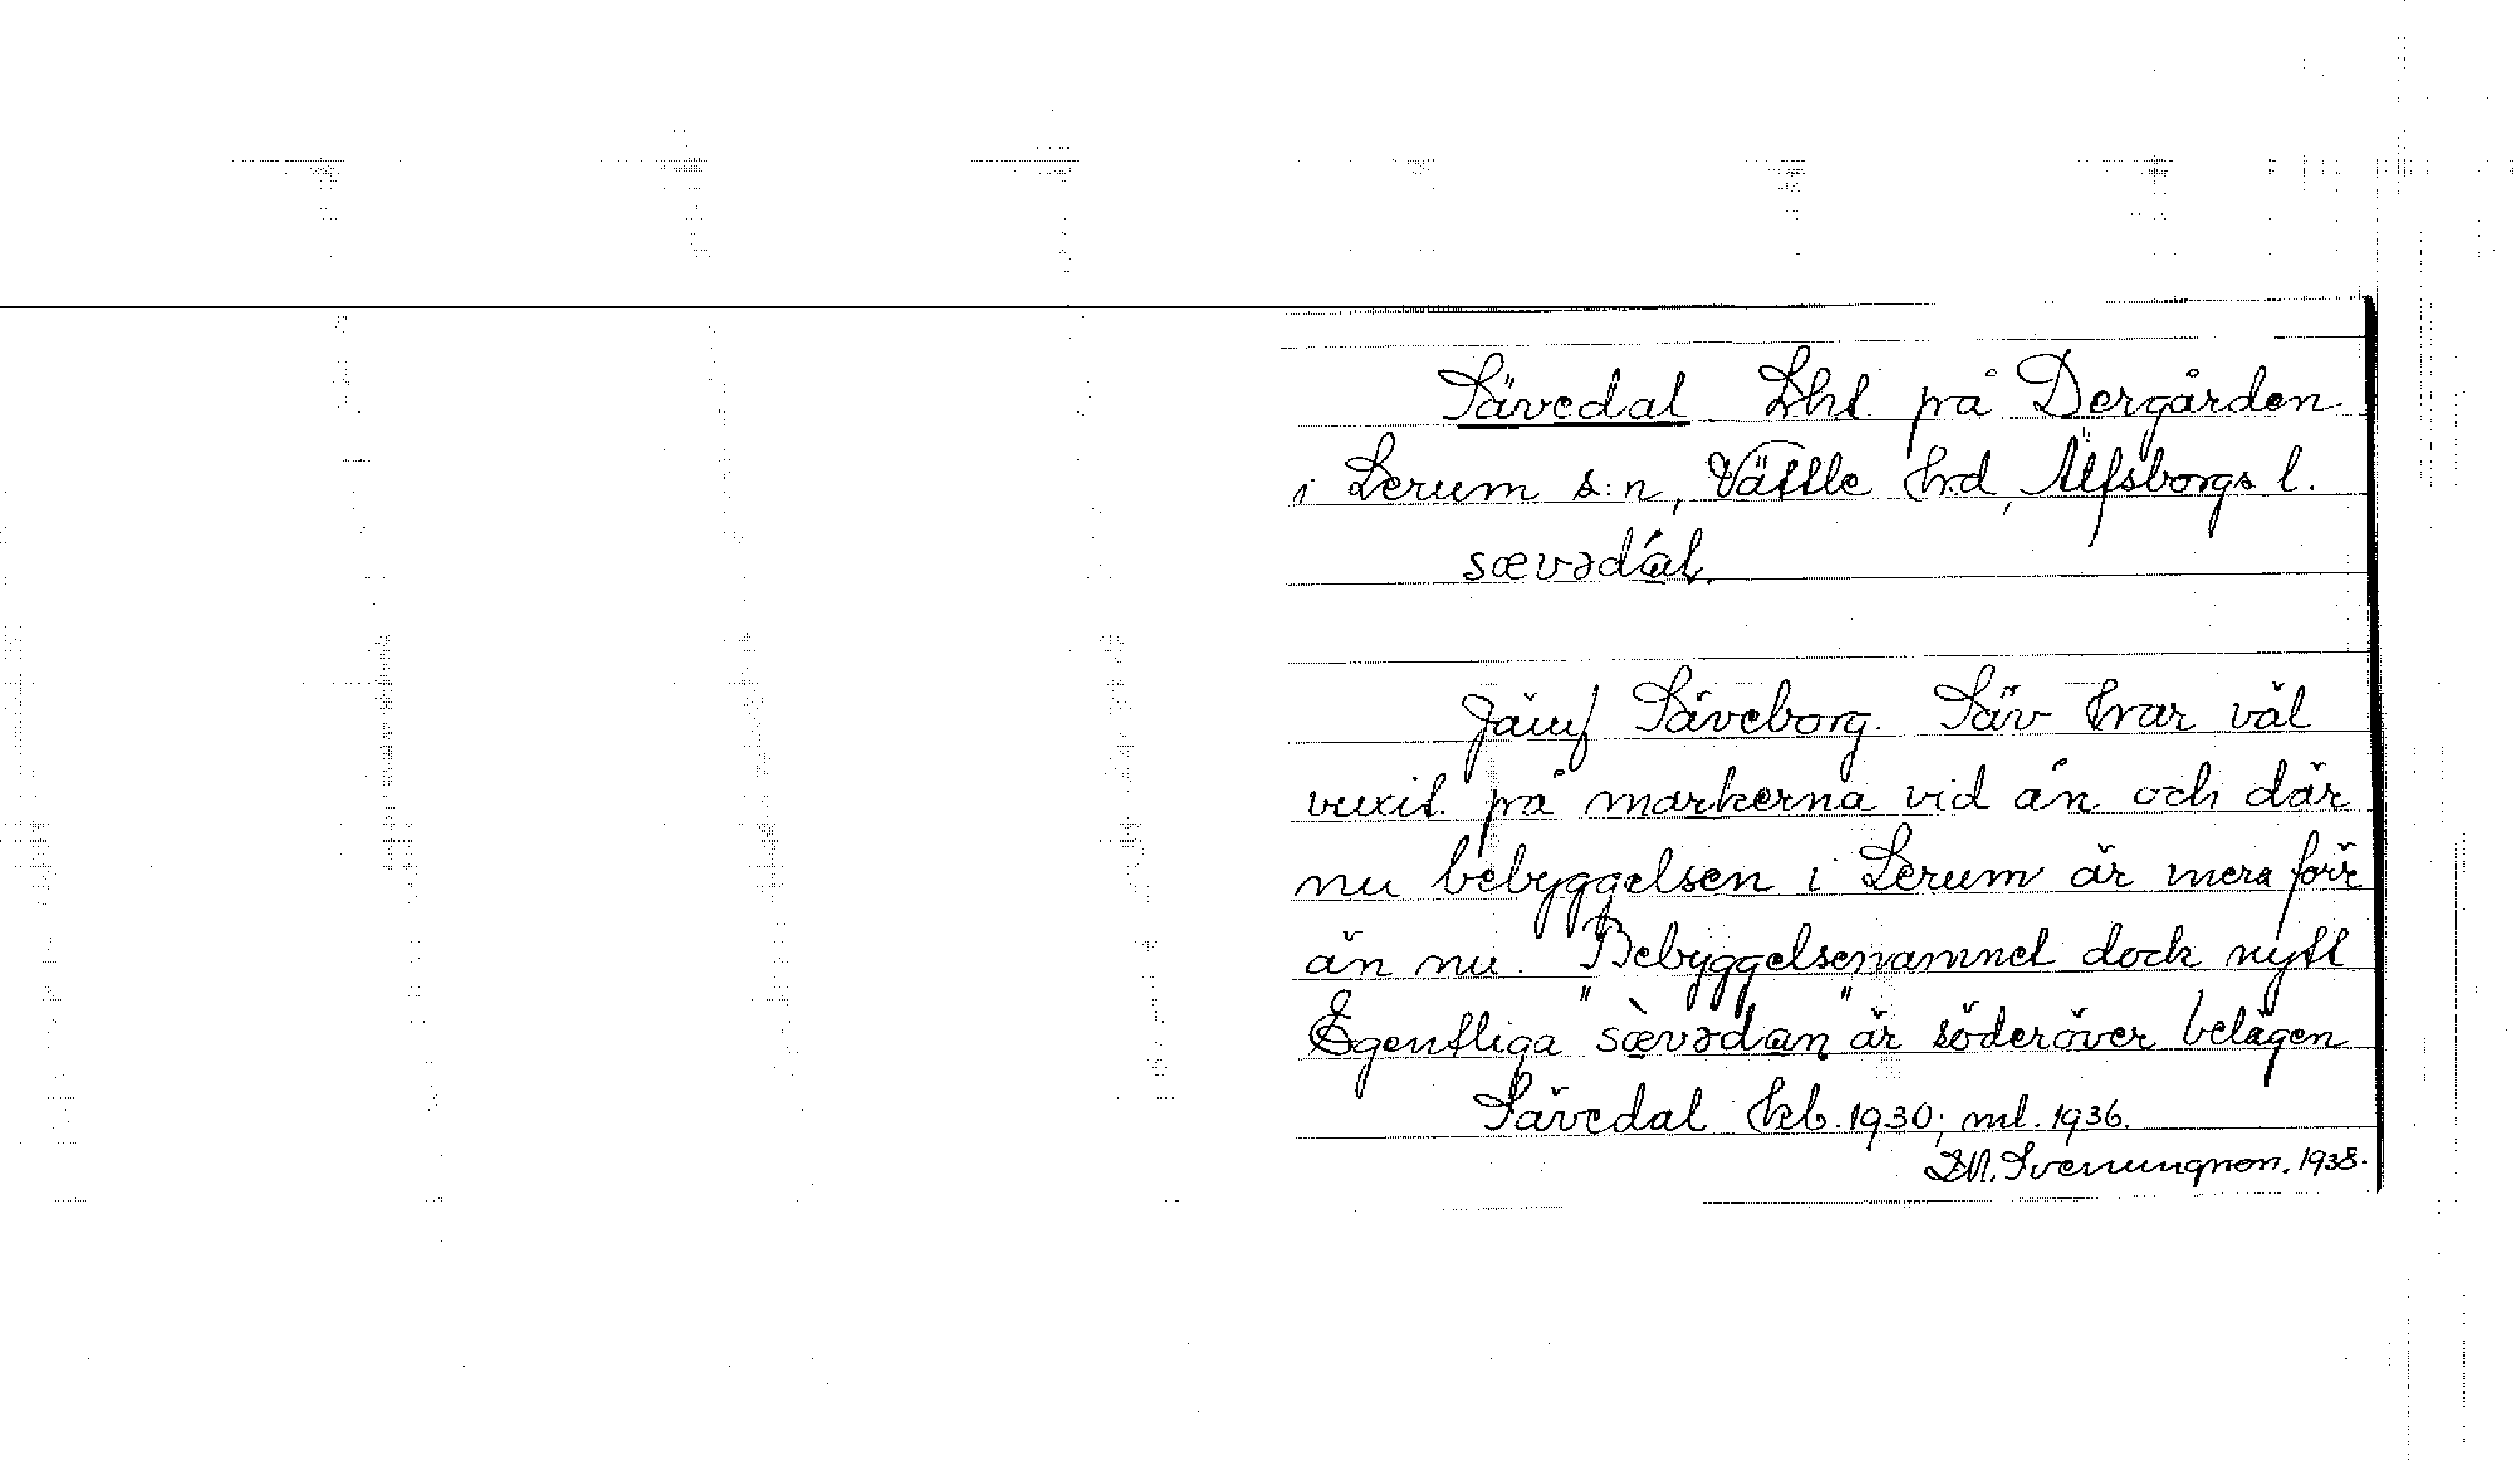 Sävedal Lht på Dergården
i Lerum s:n, Vättle hrd, Älfsborgs l.
sævədál.
Jämf Säveborg. Säv har väl
vuxit på markerna vid ån och där
nu bebyggelsen i Lerum är mera förr
än nu. Bebyggelsenamnet dock nytt
Egentliga "sævədan" är söderöver belägen
Sävedal kb. 1930; ml. 1936.
Svenungsson. 1938.